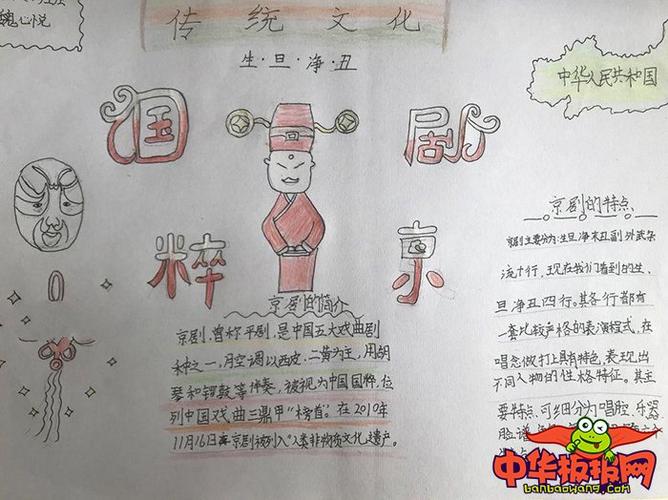 魏心悦
传统文化
生·旦·净·丑
中华人民共和国
国
剧
粹
京
京剧的简介
京剧,曾称平剧,是中国五大戏曲剧
种之一,月空调以西皮、二黄为主,用胡
琴和锣鼓等伴奏,被视为中国国粹,位
列中国戏曲三鼎甲“榜首”。在2010年
11月16日 京剧被列入“人类非物质文化遗产。
京剧的特点
京剧主要分为:生旦净末丑副外武杂
流十行,现在我们看到的生、
旦净丑四行。其各行都有
一套比较严格的表演程式,在
唱念做打上具有特色,表现出
不同人物的性格特征。其主
要特点,可细分为唱腔、乐器
脸谱
中华板报网
banbaowang.com